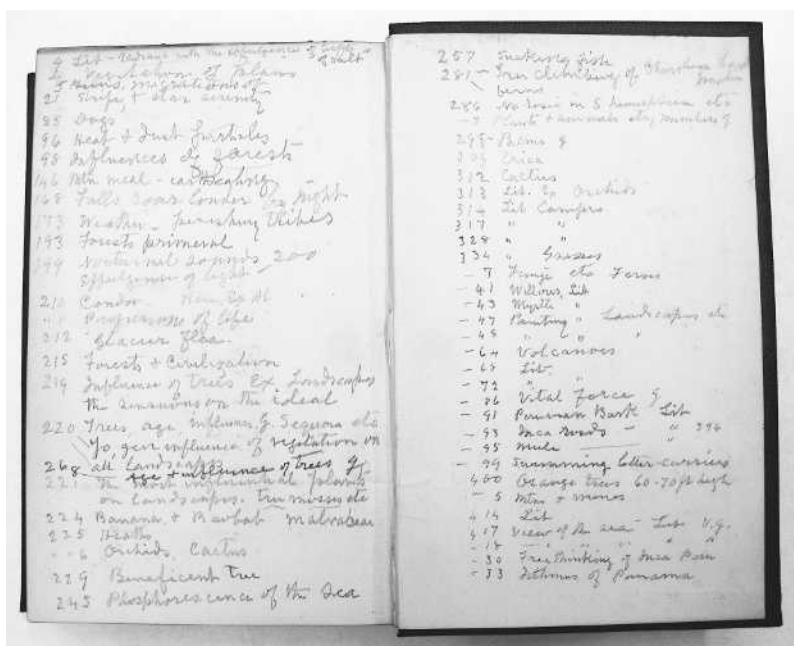 4 Lit - with the of
of salt"
2 Vegetation of plains
5 migrations of
21 Strife, & star serenity
85 Dogs
96 Heat & dust particles
98 Influences of forest
146 Mtn meal - earth eating
168 Falls roar louder by night
173 Weather - perishing tribes
193 Forests primeval
199 Nocturnal sounds - 200
Effulgence of light
210 Condor
" Progression of life
212 Glacier flea
215 Forests & Civilization
219 Influence of trees Ex Landscapes
the sensuous on the ideal
220 Trees, age influences, g. Sequoia etc
Yo, gen influence of vegetation on
all landscapes
268 age & influence of trees g
221 The most influential plants
on landscapes. tree mosses etc
224 Banana & Baobab malvaceae
225 Heaths
" 6 Orchids, Cactus
229 Beneficent tree
245 Phosphorescence of the sea
257 Sucking fish
281 - Tree climbing of
ferns
286 No in S hemisphere etc
- 7 Plants & animals etc, numbers g
295 - Palms g
309 Erica
312 Cactus
313 Lit. Ex Orchids
314 Lit Conifers
317 " "
328 " "
334 " Grasses
- 7 etc Ferns
- 41 Willows, Lit
- 43 Myrtle "
- 47 Painting " Landscapes etc
- 48 " " "
- 64 Volcanoes
- 68 Lit.
- 72 "
- 86 Vital force g
- 91 Peruvian Bark Lit
- 93 Inca roads - " 394
- 95 Mule "
- 99 Swimming letter-carriers
400 Orange trees 60-70 ft high
- 5 Mtns & mines
414 Lit
417 View of the sea - Lit V.G.
- 18 " " " " "
- 30 Free thinking of Inca
- 33 Isthmus of Panama